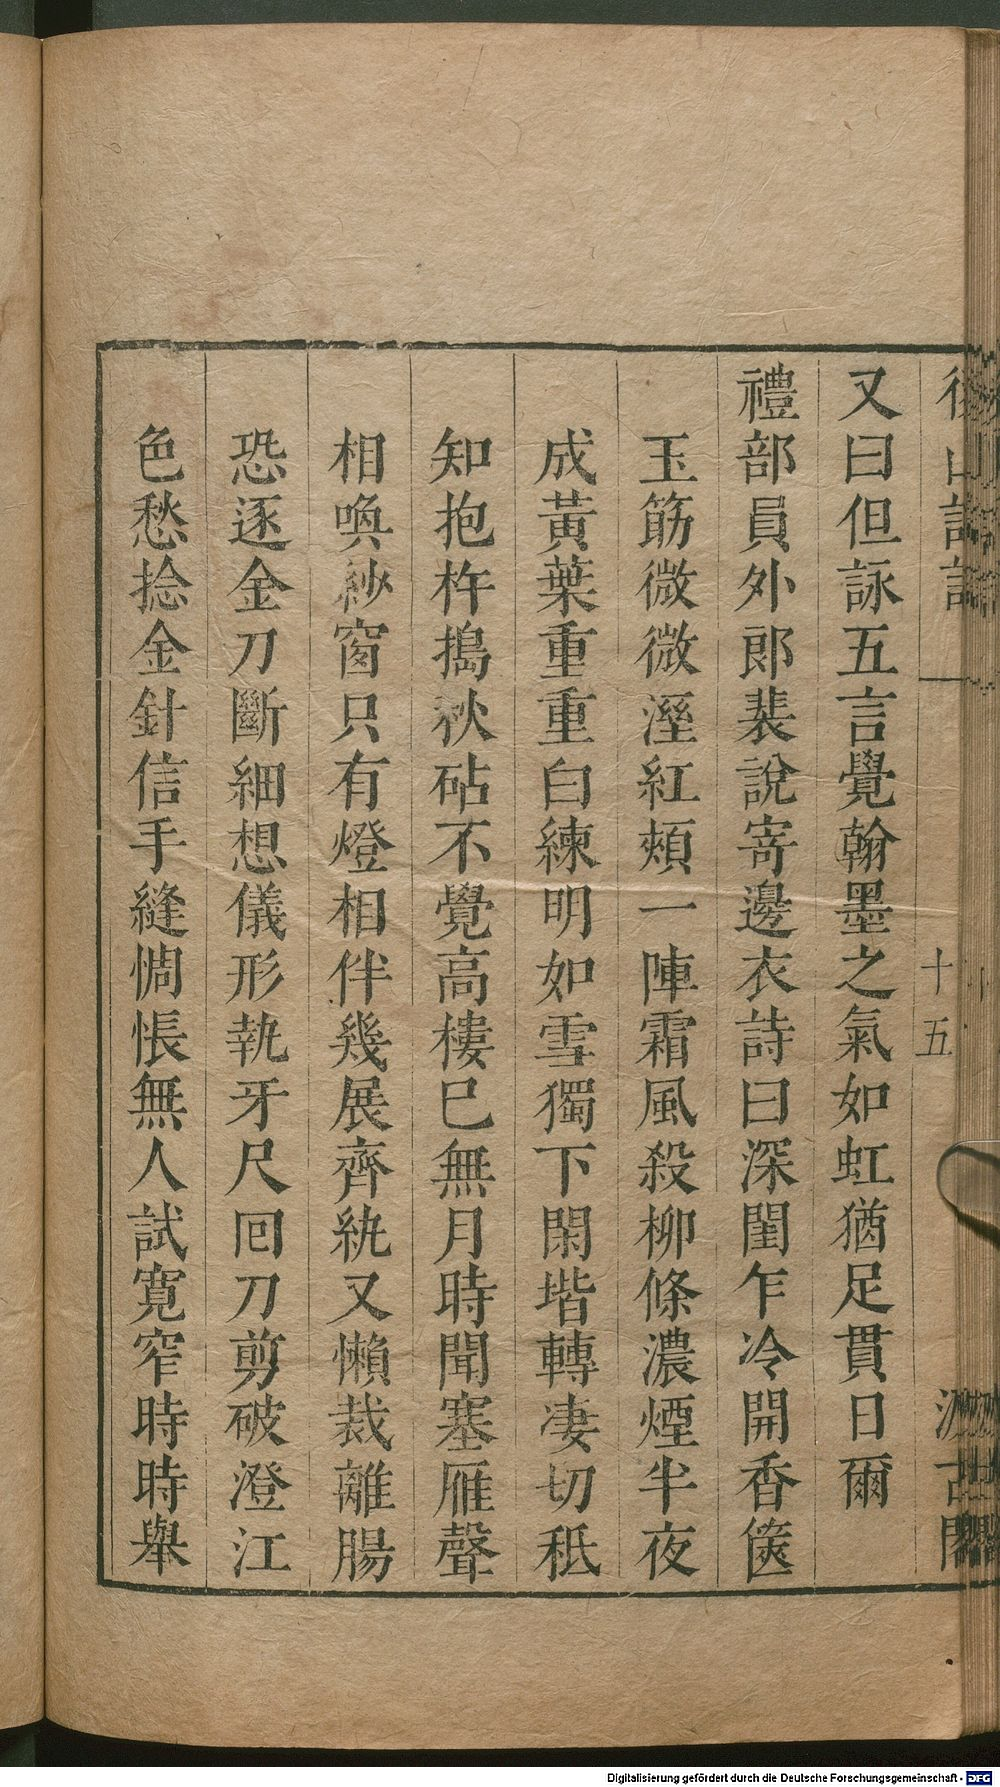 後山詩話
十五
汲古閣
又曰但詠五言覺翰墨之氣如虹猶足貫日爾
禮部員外郎裴說寄邊衣詩曰深閨乍冷開香篋
玉筯微微溼紅頰一陣霜風殺柳條濃煙半夜
成黃葉重重白練明如雪獨下閑堦轉凄切秪
知抱杵搗秋砧不覺高樓已無月時聞塞雁聲
相喚紗窗只有燈相伴幾展齊紈又懶裁離腸
恐逐金刀斷細想儀形執牙尺回刀剪破澄江
色愁捻金針信手縫惆悵無人試寬窄時時舉
Digitalisierung gefördert durch die Deutsche Forschungsgemeinschaft - DFG